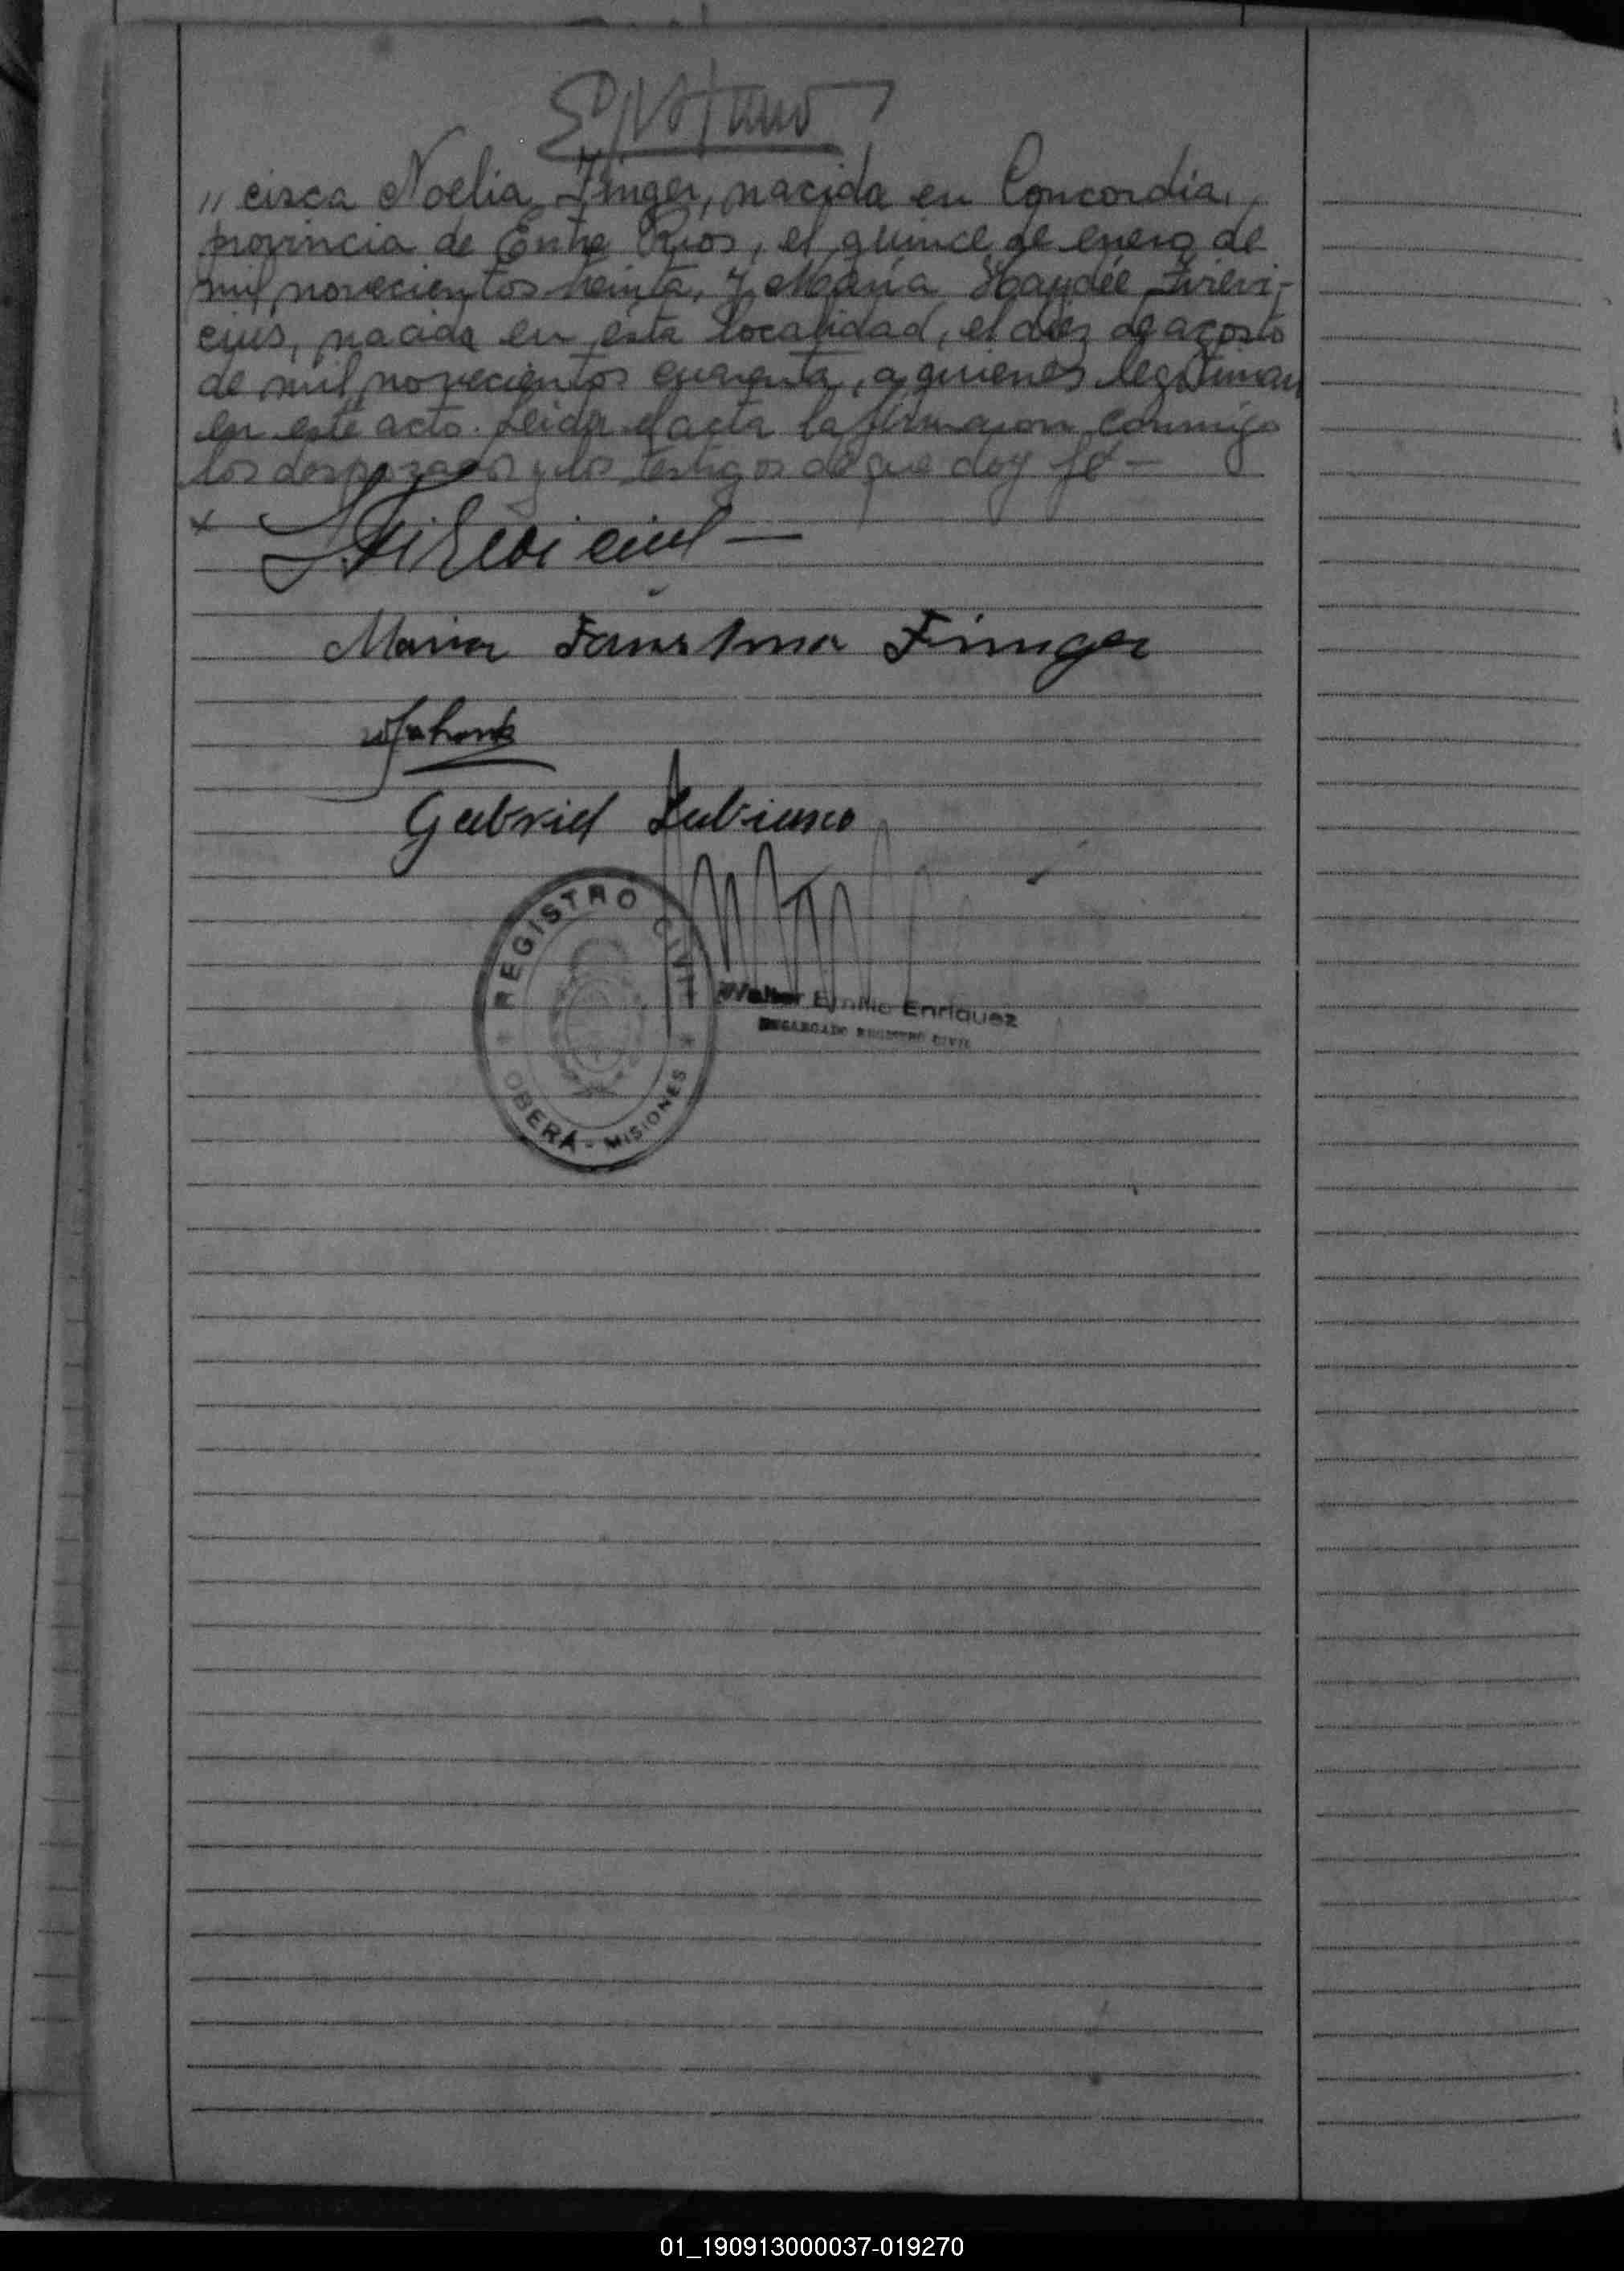 " cisca Noelia Finger, nacida en Concordia,
provincia de Entre Rios, el quince de enero de
mil novecientos treinta, y Maria Haydée
cius, nacida en esta localidad, el diez de agosto
de mil novecientos cuarenta, a quienes legitiman
en este acto. Leida el acta la firmaron conmigo
los desposados y los testigos de que doy fé -
x
Maria Faustina Finger
Gabriel
REGISTRO CIVIL
OBERÁ - MISIONES
Walter Emilio Enriquez
ENCARGADO REGISTRO CIVIL
01_190913000037-019270